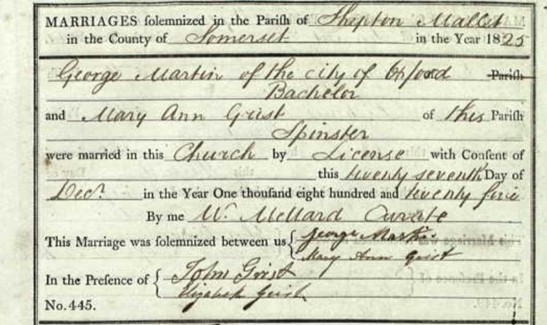 MARRIAGES solemnized in the Parish of Shepton Mallet
in the County of Somerset in the Year 1825
George Martin of the city of Oxford Parish
Bachelor
and Mary Ann Grist of this Parish
Spinster
were married in this Church by License with Consent of
this twenty seventh Day of
Decr. in the Year One thousand eight hundred and twenty five
By me Wm. Mellard Curate
This Marriage was solemnized between us { George Martin
Mary Ann Grist
In the Presence of { John Grist
Elizabeth Grist
No. 445.